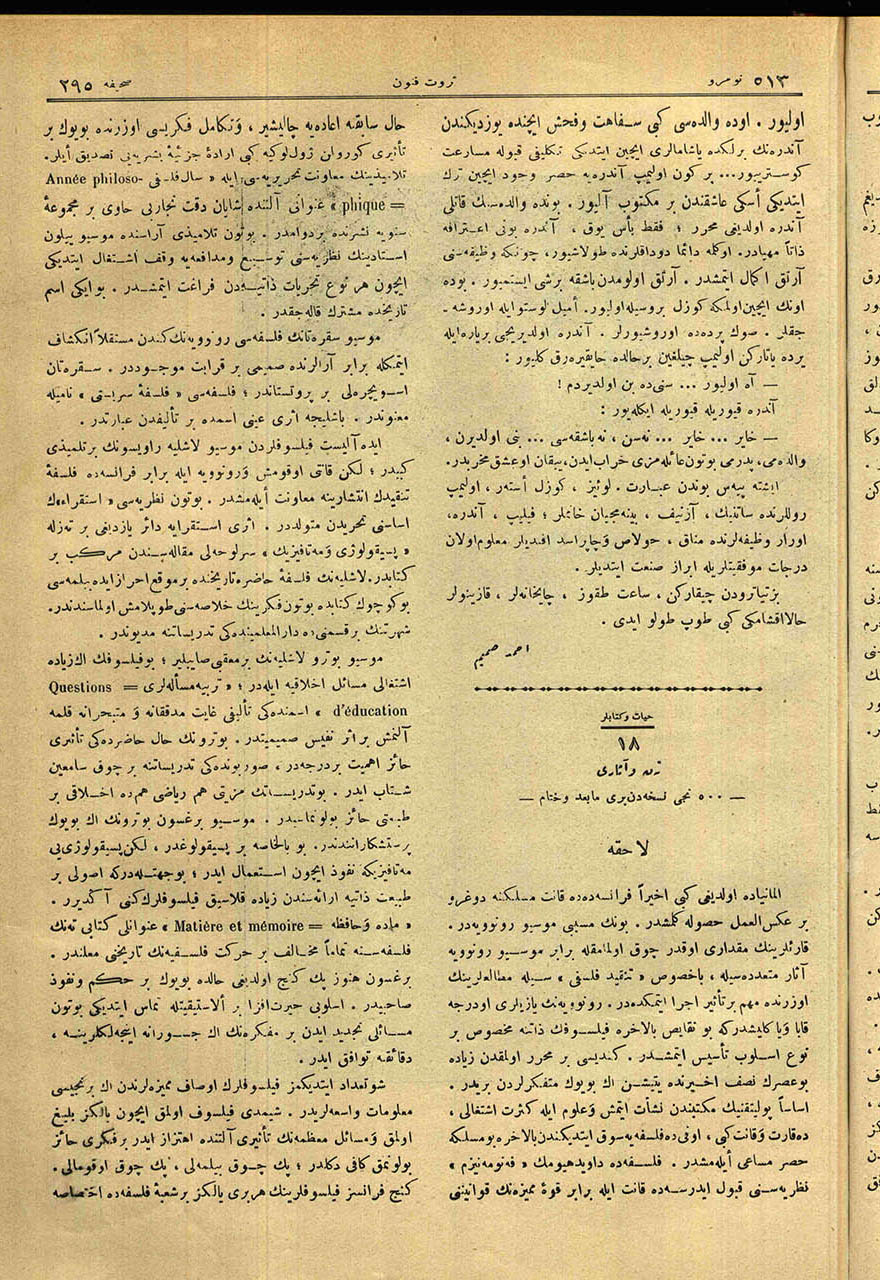 نومرو ٥١٣
ثروت فنون
صحیفه ٢٩٥
اولیور . اوده والده‌سی کبی سفاهت وفحش ایچنده یوزدیکندن
آندره‌نك برلکده یاشامالری ایچین ایتدیکی تکلیفی قبوله مسارعت
کوستریور... بر کون اولیمپ آندره‌یه حصر وجود ایچین ترك
ایتدیکی أسکی عاشقندن بر مکتوب آلیور . بونده والده‌سنك قاتلی
آندره اولدیغی محرر ؛ فقط بأس یوق ، آندره بونی اعترافه
ذاتاً مهیادر. اوکله دائما دوداقلرنده طولاشیور، چونکه وظیفه‌سنی
آرتق اکمال ایتمشدر . آرتق اولومدن باشقه برشی ایستمیور . بوده
اونك ایچین اولمکه کوزل بروسیله اولیور. أمیل لوستو ایله اوروشه -
جقلر . صوك پرده‌ده اوروشیورلر . آندره اولدیریجی بریاره‌ایله
یرده یاتارکن اولیمپ چیلغین برحالده حایقیره‌رق کلیور :
— آه اولیور ... سنی‌ده بن اولدیردم !
آندره قیوریله قیوریله ایکله‌یور :
— خایر ... خایر ... نه‌سن ، نه‌باشقه‌سی ... بنی اولدیرن ،
والده‌می، پدرمی بوتون عائله‌مزی خراب ایدن، ییقان اوعشق مخربدر.
ایشته پیه‌س بوندن عبارت . لوئیز ، کوزل أستر ، اولیمپ
روللرنده ساتنیك ، آزنیف ، بینه‌مجیان خانملر ؛ فیلیپ ، آندره،
اورار وظیفه‌لرنده مناق ، حولاص وچاپراسد افندیلر معلوم اولان
درجات موفقیتلریله ابراز صنعت ایتدیلر .
بزتیاترودن چیقارکن ، ساعت طقوز ، چایخانه‌لر ، قازینولر
حالا اقشامکی کبی طوپ طولو ایدی .
احمد صمیم
حیات وکتابلر
١٨
تن وآثاری
— ٥٠٠ نجی نسخه‌دن بری مابعد وختام —
لاحقه
المانیاده اولدیغی کبی اخیراً فرانسه‌ده‌ده قانت مسلکنه دوغرو
بر عکس العمل حصوله کلمشدر . بونك مسببی موسیو رونوویه‌در .
قارئلرینك مقداری اوقدر چوق اولمامقله برابر موسیو رونوویه
آثار متعدده‌سیله ، باخصوص « تنقید فلسفی » سیله مطالعه‌لرینك
اوزرنده مهم برتأثیر اجرا ایتمکده‌در . رونوویه‌نك یازیلری اودرجه
قابا ویا کایشدرکه بو نقایص بالاخره فیلسوفك ذاتنه مخصوص بر
نوع اسلوب تأسیس ایتمشدر . کندیسی بر محرر اولمقدن زیاده
بوعصرك نصف اخیرنده یتیشن اك بویوك متفکرلردن بریدر .
اساساً پولیتقنیك مکتبندن نشأت ایتمش وعلوم ایله کثرت اشتغالی ،
ده‌قارت وقانت کبی ، اونی‌ده فلسفه‌یه‌سوق ایتدیکندن بالاخره بومسلکه
حصر مساعی أیله‌مشدر . فلسفه‌ده داوید هیومك « فه‌نومه‌نیزم »
نظریه‌سنی قبول ایدرسه‌ده قانت ایله برابر قوهٔ ممیزه‌نك قوانیننی
حال سابقنه اعاده‌یه چالیشیر ، وتکامل فکریسی اوزرنده بویوك بر
تأثیری کوروان ژول لوکیه کبی ارادهٔ جزئیهٔ بشریه‌یی تصدیق أیلر.
تلامیذینك معاونت تحریریه‌سی ایله « سال فلسفی Année philoso-
phique = » عنوانی آلتنده شایان دقت تجاربی حاوی بر مجموعهٔ
سنویه نشرنده بردوامدر . بوتون تلامیذی آراسنده موسیو پیلون
استادینك نظریه‌سنی توسیع ومدافعه‌یه وقف اشتغال ایتدیکی
ایچون هر نوع تحریات ذاتیه‌دن فراغت ایتمشدر . بوایکی اسم
تاریخده مشترك قاله‌جقدر .
موسیو سقره‌تانك فلسفه‌سی رونوویه‌نك‌کندن مستقلاً انکشاف
ایتمکله برابر آرالرنده صمیمی بر قرابت موجوددر . سقره‌تان
اسویچره‌لی بر پروتستاندر ؛ فلسفه‌سی « فلسفهٔ سربستی » نامیله
معنوندر . باشلیجه اثری عینی اسمده بر تألیفدن عبارتدر .
ایده‌آلیست فیلسوفلردن موسیو لاشلیه راویسونك برتلمیذی
کبیدر ؛ لکن قانتی اوقومش ورونوویه ایله برابر فرانسه‌ده فلسفهٔ
تنقیدك انتشارینه معاونت أیله‌مشدر . بوتون نظریه‌سی « استقراء»ك
اساسنی تحریدن متولددر . اثری استقرایه دائر یازدیغی بر ته‌زله
« پسیقولوژی ومه‌تافیزیك » سرلوحه‌لی مقاله‌سندن مرکب بر
کتابدر. لاشلیه‌نك فلسفهٔ حاضره تاریخنده برموقع احراز ایده بیلمه‌سی
بوکوچوك کتابده بوتون فکرینك خلاصه‌سنی طوپلامش اولماسندندر.
شهرتنك برقسمنی‌ده دارالمعلمینده‌کی تدریساتنه مدیوندر .
موسیو بوترو لاشلیه‌نك برمعقبی صاییلیر ؛ بوفیلسوفك اك‌زیاده
اشتغالی مسائل اخلاقیه ایله‌در ؛ « تربیه مسأله‌لری = Questions
d'éducation » اسمنده‌کی تألیفی غایت مدققانه و متبحرانه قلمه
آلنمش براثر نفیس صمیمیتدر . بوترونك حال حاضرده‌کی تأثیری
حائز اهمیت بردرجه‌در ، صوربونده‌کی تدریساتنه بر چوق سامعین
شتاب ایدر . بوتدریساتك مزیتی هم ریاضی هم‌ده اخلاقی بر
طبیعتی حائز بولونماسیدر . موسیو برغسون بوترونك اك بویوك
پرستشکارانندندر. بو بالخاصه بر پسیقولوغدر ، لکن پسیقولوژی‌یی
مه‌تافیزیکه نفوذ ایچون استعمال ایدر ؛ بوجهتله‌درکه اصولی بر
طبیعت ذاتیه ارائه‌سندن زیاده قلاسیق فیلسوفلرك‌کنی آکدیرر .
« ماده وحافظه = Matière et mémoire » عنوانلی کتابی ته‌نك
فلسفه‌سنه تماماً مخالف بر حرکت فلسفیه‌نك تاریخنی معلندر .
برغسون هنوز پك کنج اولدیغی حالده بویوك بر حکم ونفوذ
صاحبیدر . اسلوبی حیرت‌افزا بر ألاستیقیتله تماس ایتدیکی بوتون
مسائلی تجدید ایدن بر مفکره‌نك اك جسورانه اینجه‌لکلرینه ،
دقائقنه توافق ایدر .
شو تعداد ایتدیکمز فیلسوفلرك اوصاف ممیزه‌لرندن اك برنجیسی
معلومات واسعه‌لریدر . شیمدی فیلسوف اولمق ایچون یالکز بلیغ
اولمق ومسائل معظمه‌نك تأثیری آلتنده اهتزاز ایدر برفکری حائز
بولونمق کافی دکلدر ؛ پك چوق بیلمه‌لی ، پك چوق اوقومالی .
کنج فرانسز فیلسوفلرینك هربری یالکز برشعبهٔ فلسفه‌ده اختصاصه